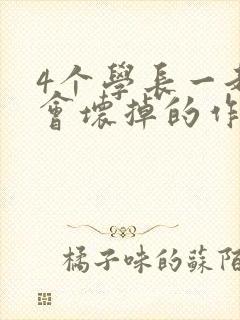 4个學長一
會壞掉的作
橘子味的蘇